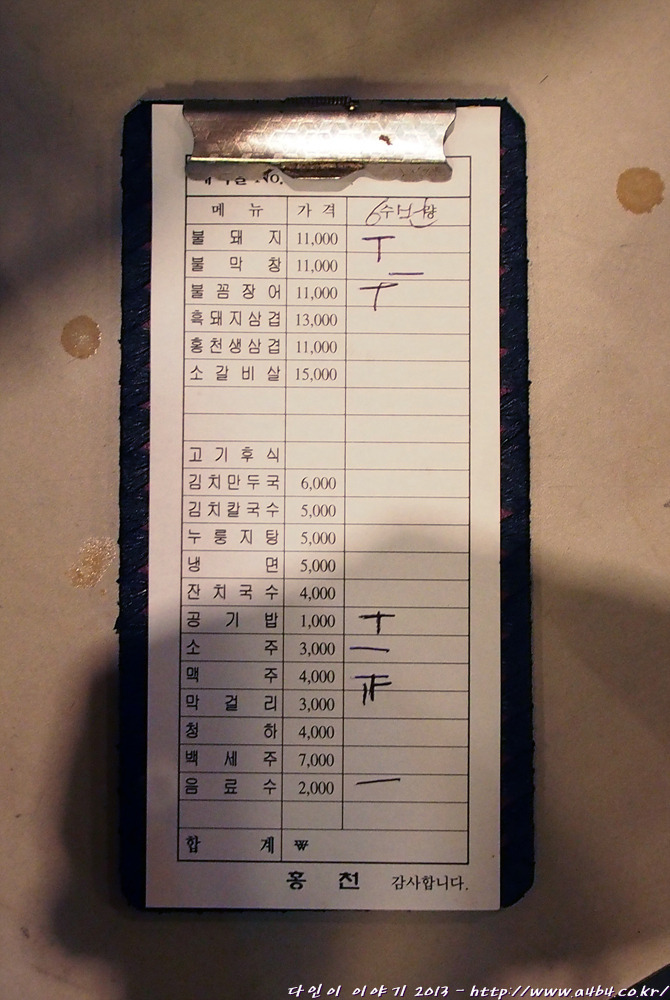 No.
메 뉴 가 격 수 량
불 돼 지 11,000 丅
불 막 창 11,000 一
불 꼼 장 어 11,000 丅
흑돼지삼겹 13,000
홍천생삼겹 11,000
소 갈 비 살 15,000
고 기 후 식
김치만두국 6,000
김치칼국수 5,000
누 룽 지 탕 5,000
냉 면 5,000
잔 치 국 수 4,000
공 기 밥 1,000 丅
소 주 3,000 一
맥 주 4,000 正
막 걸 리 3,000
청 하 4,000
백 세 주 7,000
음 료 수 2,000 一
합 계 ₩
홍 천 감사합니다.
다인이 이야기 2013 - http://www.a4b4.co.kr/